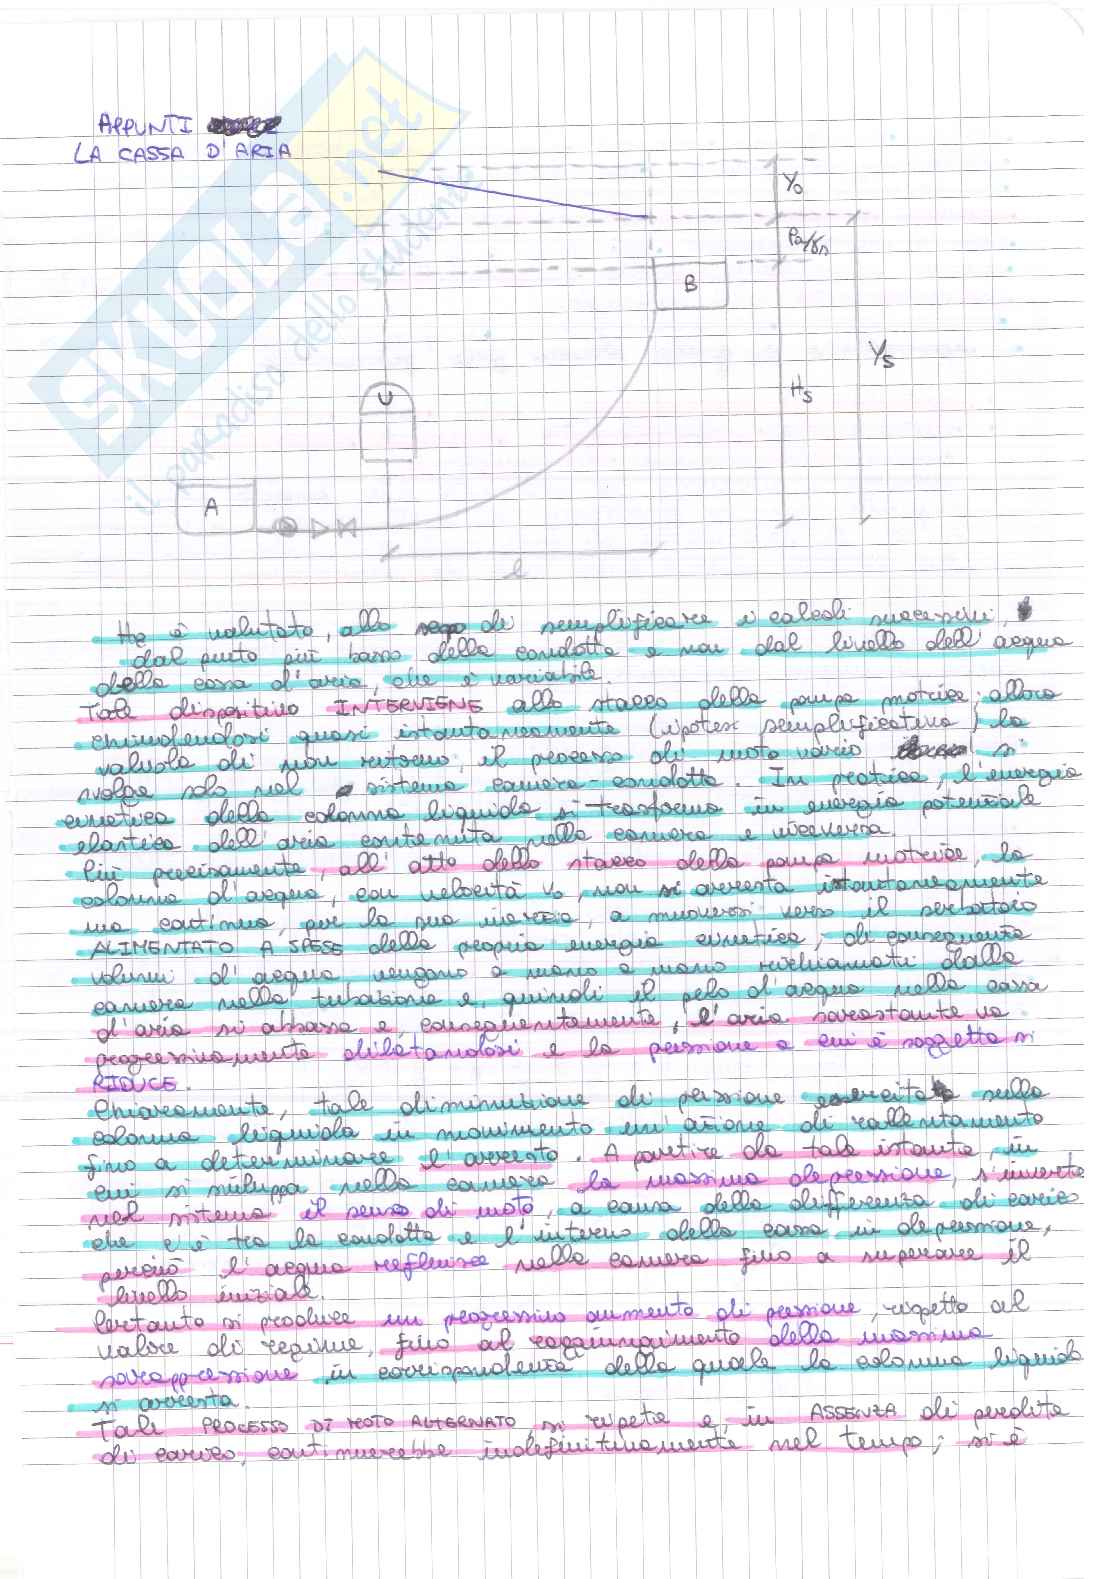 APPUNTI
LA CASSA D'ARIA
SKUOLA.net
il paradiso dello studente
Y₀
Pa/γₙ
B
Yₛ
Hₛ
U
A
l
è valutato, allo di semplificare i calcoli successivi,
dal punto più basso della condotta e non dal livello dell'acqua
della cassa d'aria, che è variabile.
Tale dispositivo INTERVIENE allo stacco della pompa motrice; allora
chiudendosi quasi istantaneamente (ipotesi semplificativa) la
valvola di non ritorno, il processo di moto vario si
svolge solo nel sistema camera-condotta. In pratica, l'energia
cinetica della colonna liquida si trasforma in energia potenziale
elastica dell'aria contenuta nella camera e viceversa.
Più precisamente, all'atto dello stacco della pompa motrice, la
colonna d'acqua, con velocità v₀, non si arresta istantaneamente
ma continua, per la sua inerzia, a muoversi verso il serbatoio
ALIMENTATO A SPESE della propria energia cinetica; di conseguenza
volumi d'acqua vengono a mano a mano richiamati dalla
camera nella tubazione e, quindi il pelo d'acqua nella cassa
d'aria si abbassa e, conseguentemente, l'aria sovrastante va
progressivamente dilatandosi e la pressione a cui è soggetta si
RIDUCE.
Chiaramente, tale diminuzione di pressione esercita nella
colonna liquida in movimento un'azione di rallentamento
fino a determinare l'arresto. A partire da tale istante, in
cui si sviluppa nella camera la massima depressione, s'inverte
nel sistema il senso di moto, a causa della differenza di carico
che c'è tra la condotta e l'interno della cassa in depressione,
perciò l'acqua refluisce nella camera fino a superare il
livello iniziale.
Pertanto si produce un progressivo aumento di pressione, rispetto al
valore di regime, fino al raggiungimento della massima
sovrappressione in corrispondenza della quale la colonna liquida
si arresta.
Tale PROCESSO DI MOTO ALTERNATO si ripete e, in ASSENZA di perdite
di carico, continuerebbe indefinitivamente nel tempo; si è